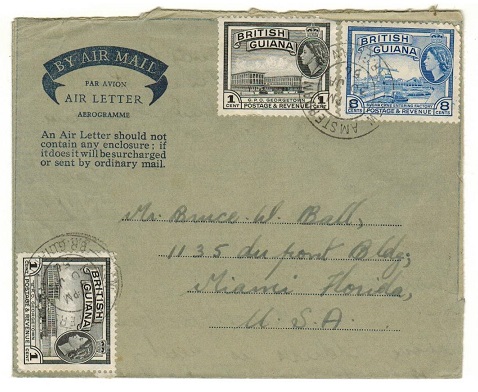 BY AIR MAIL
PAR AVION
AIR LETTER
AEROGRAMME
An Air Letter should not
contain any enclosure; if
it does it will be surcharged
or sent by ordinary mail.
BRITISH
GUIANA
1 CENT
1 CENT
G.P.O. GEORGETOWN
POSTAGE & REVENUE
BRITISH
GUIANA
8 CENTS
8 CENTS
POSTAGE & REVENUE
AMSTER
Mr. Bruce W. Ball,
1135 du pont Bldg;
Miami Florida,
U. S. A.
BRITISH
GUIANA
1
1
POSTAGE & REVENUE